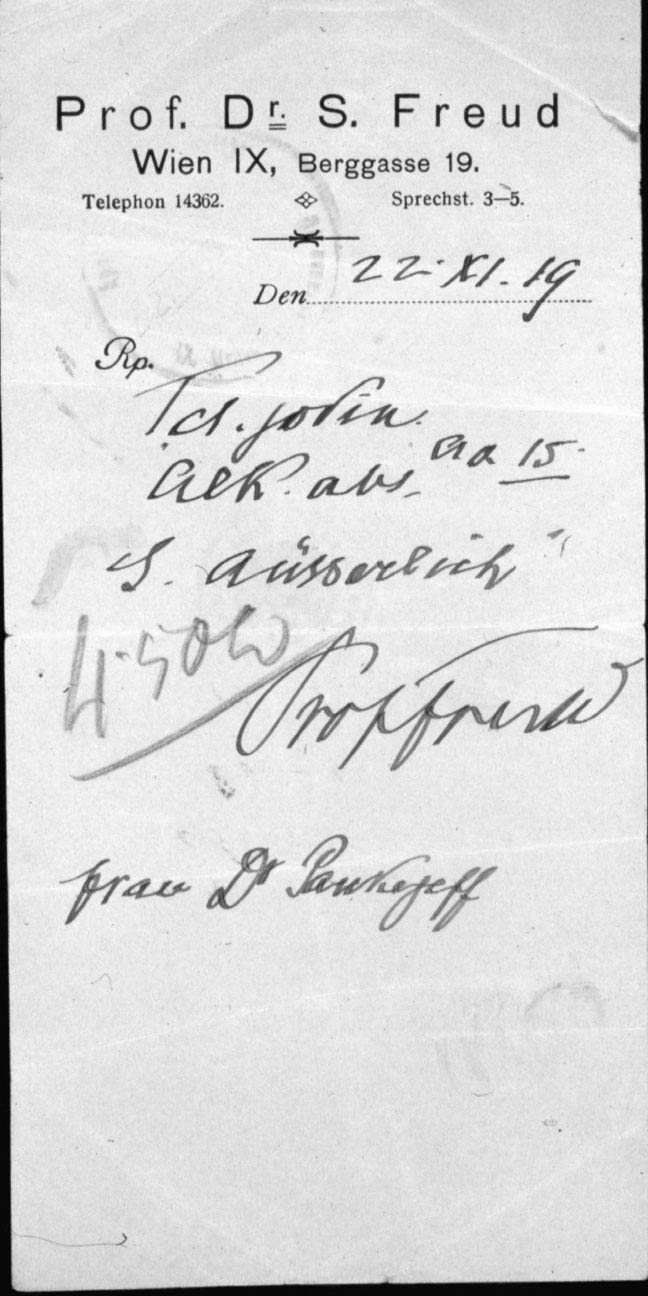 Prof. Dr. S. Freud
Wien IX, Berggasse 19.
Telephon 14362. Sprechst. 3–5.
Den 22. XI. 19
Rp.
Tct. jodin.
Alk. abs. aa 15.
S. Äusserlich
Prof Freud
Frau Dr Pankejeff